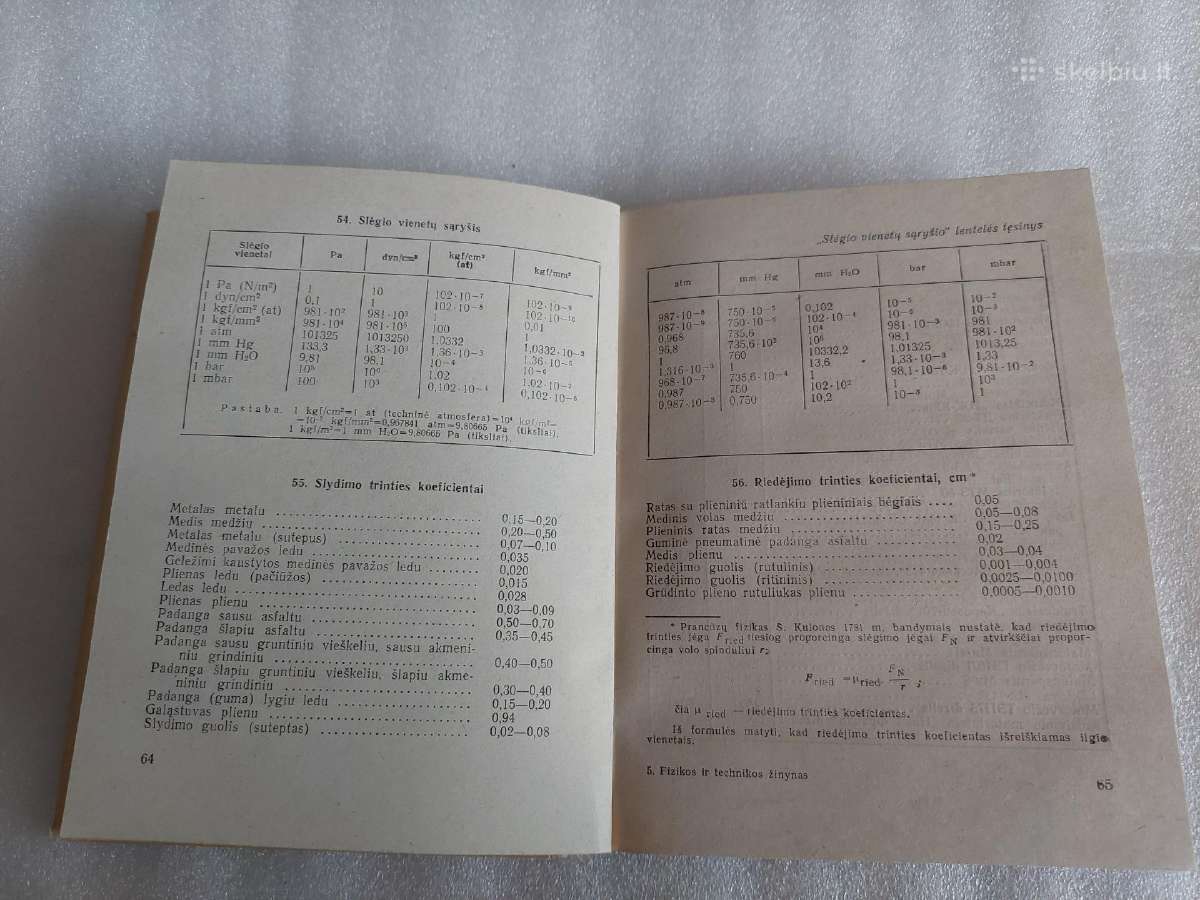 skelbiu.lt
54. Slėgio vienetų sąryšis
Slėgio vienetai Pa dyn/cm² kgf/cm² (at) kgf/mm²
1 Pa (N/m²) 1 10 102·10−7 102·10−9
1 dyn/cm² 0,1 1 102·10−8 102·10−10
1 kgf/cm² (at) 981·10² 981·10³ 1 0,01
1 kgf/mm² 981·10⁴ 981·10⁵ 100
1 atm 101325 1013250 1,0332 1,0332·10−2
1 mm Hg 133,3 1,33·10³ 1,36·10−3 1,36·10−5
1 mm H₂O 9,81 98,1 10−4 10−6
1 bar 10⁵ 10⁶ 1,02 1,02·10−2
1 mbar 100 10³ 0,102·10−4
Pastaba. 1 kgf/cm²=1 at (techninė atmosfera)=10⁴ kgf/m²=
=10−2 kgf/mm²=0,967841 atm=9,80665 Pa (tiksliai).
1 kgf/m²=1 mm H₂O=9,80665 Pa (tiksliai).
55. Slydimo trinties koeficientai
Metalas metalu 0,15—0,20
Medis medžiu 0,20—0,50
Metalas metalu (sutepus) 0,07—0,10
Medinės pavažos ledu 0,035
Geležimi kaustytos medinės pavažos ledu 0,020
Plienas ledu (pačiūžos) 0,015
Ledas ledu 0,028
Plienas plienu 0,03—0,09
Padanga sausu asfaltu 0,50—0,70
Padanga šlapiu asfaltu 0,35—0,45
Padanga sausu gruntiniu vieškeliu, sausu akmeni-
niu grindiniu 0,40—0,50
Padanga šlapiu gruntiniu vieškeliu, šlapiu akme-
niniu grindiniu 0,30—0,40
Padanga (guma) lygiu ledu 0,15—0,20
Galąstuvas plienu 0,94
Slydimo guolis (suteptas) 0,02—0,08
64
„Slėgio vienetų sąryšio" lentelės tęsinys
atm mm Hg mm H₂O bar mbar
987·10−8 750·10−5 0,102 10−5 10−2
987·10−9 750·10−6 102·10−4 10−6 10−3
0,968 735,6 10⁴ 981·10−3 981
96,8 735,6·10² 10⁶ 98,1 981·10²
1 760 10332,2 1,01325 1013,25
1,316·10−3 1 13,6 1,33·10−3 1,33
968·10−7 735,6·10−4 1 98,1·10−6 9,81·10−2
0,987 750 102·10² 1 10³
0,987·10−3 0,750 10,2 10−3 1
56. Riedėjimo trinties koeficientai, cm*
Ratas su plieniniu ratlankiu plieniniais bėgiais 0,05
Medinis volas medžiu 0,05—0,08
Plieninis ratas medžiu 0,15—0,25
Guminė pneumatinė padanga asfaltu 0,02
Medis plienu 0,03—0,04
Riedėjimo guolis (rutulinis) 0,001—0,004
Riedėjimo guolis (ritininis) 0,0025—0,0100
Grūdinto plieno rutuliukas plienu 0,0005—0,0010
* Prancūzų fizikas Š. Kulonas 1781 m. bandymais nustatė, kad riedėjimo
trinties jėga F ried tiesiog proporcinga slėgimo jėgai F N ir atvirkščiai propor-
cinga volo spinduliui r:
F ried = μ ried · F N / r ;
čia μ ried — riedėjimo trinties koeficientas.
Iš formulės matyti, kad riedėjimo trinties koeficientas išreiškiamas ilgio
vienetais.
5. Fizikos ir technikos žinynas
65